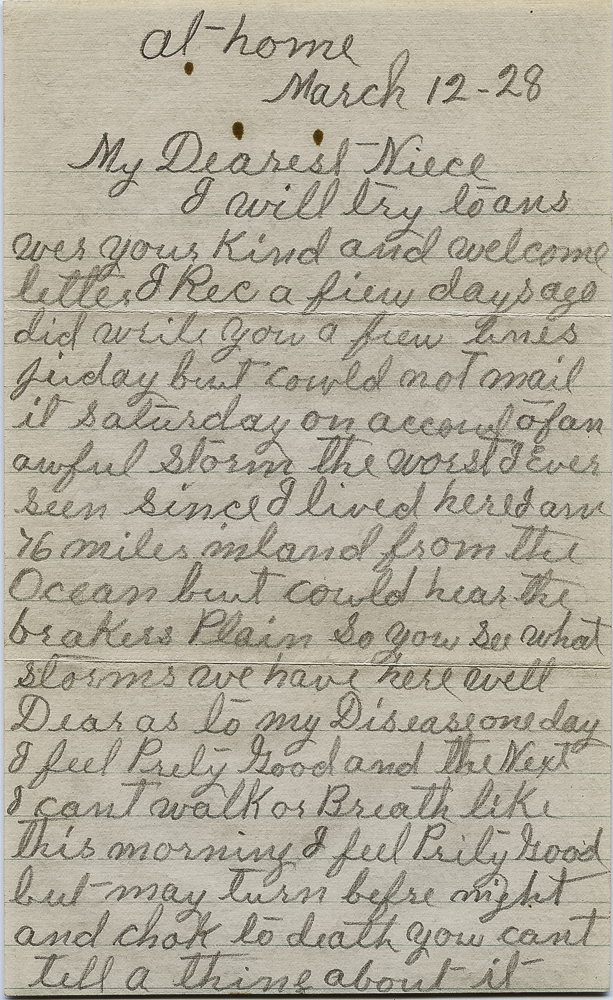 at home
March 12-28
My Dearest Niece
I will try to ans
wer your Kind and welcome
letter I Rec a fiew days ago
did write you a fiew lines
friday but cowld not mail
it Saturday on account of an
awful Storm the worst I Ever
seen since I lived here I am
76 miles inland from the
Ocean but cowld hear the
brakers Plain So you See what
storms we have here well
Dear as to my Disease one day
I feel Prety Good and the Next
I cant walk or Breath like
this morning I feel Prity Good
but may turn befre night
and chok to death you cant
tell a thing about it